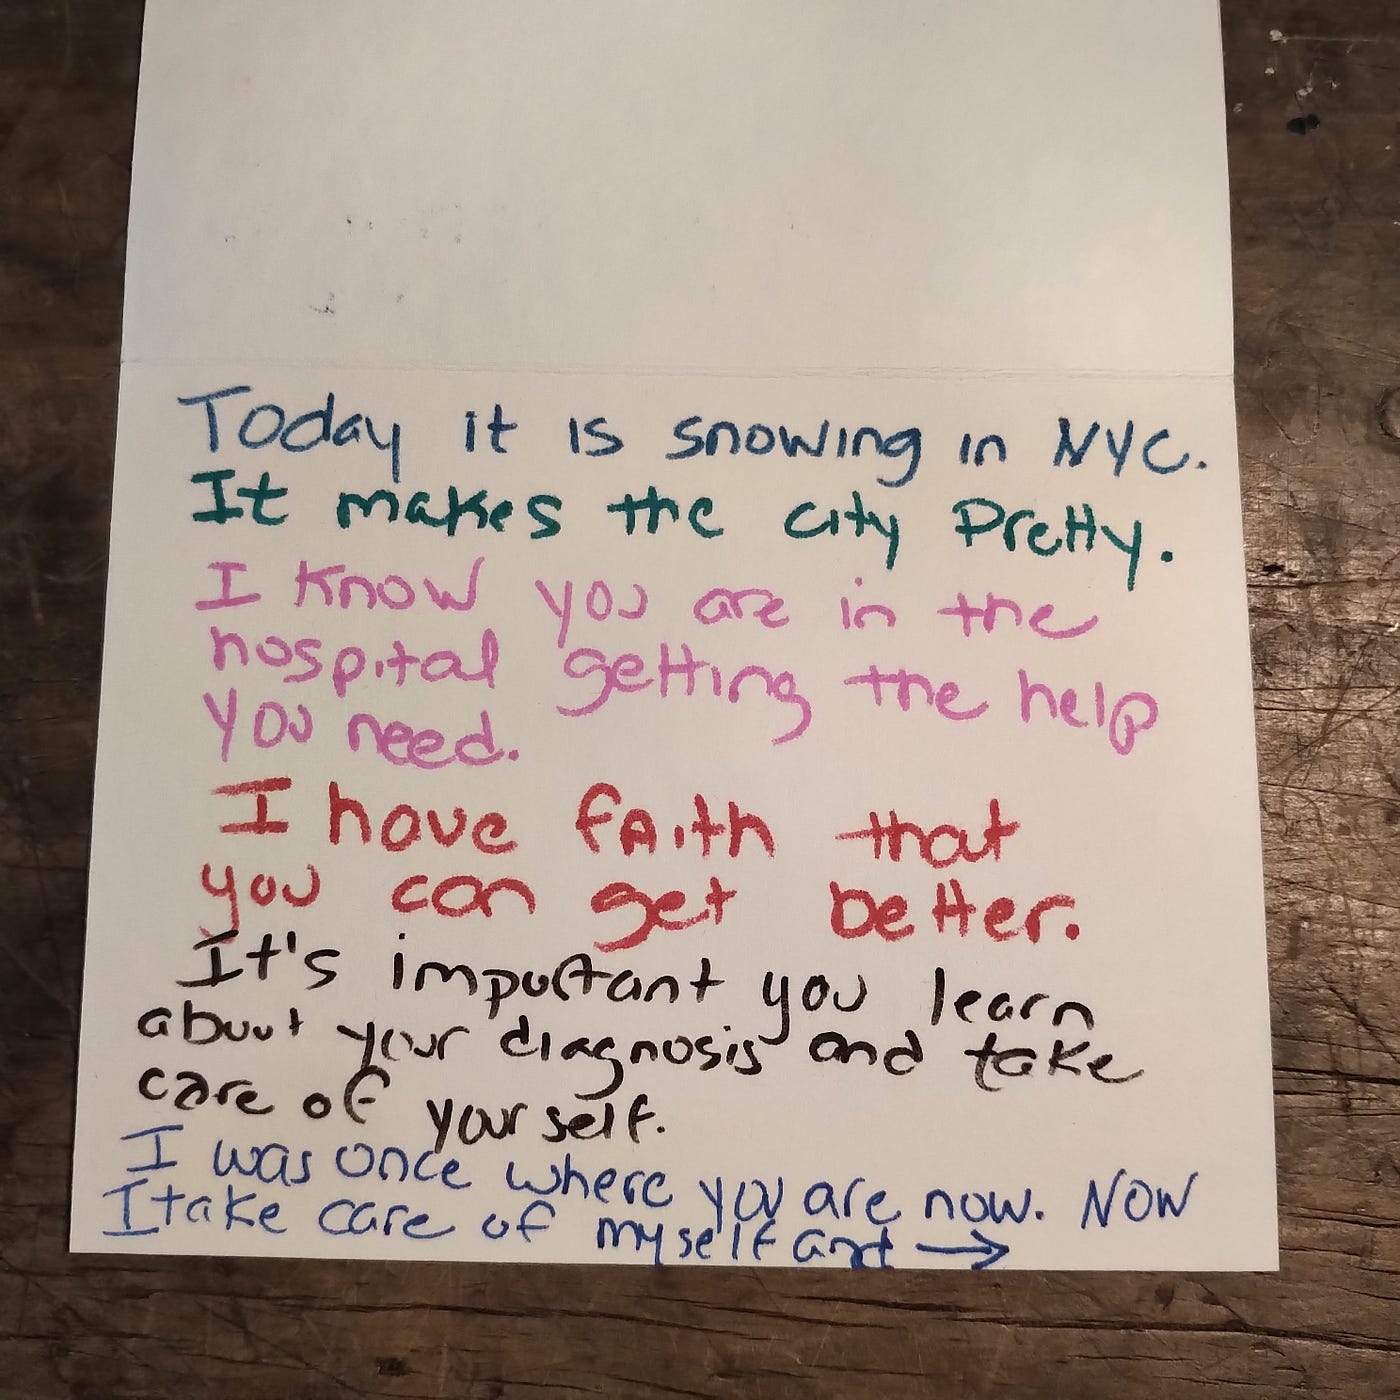 Today it is snowing in NYC.
It makes the city Pretty.
I know you are in the
hospital getting the help
you need.
I have faith that
you can get better.
It's important you learn
about your diagnosis and take
care of yourself.
I was once where you are now. Now
I take care of myself and →